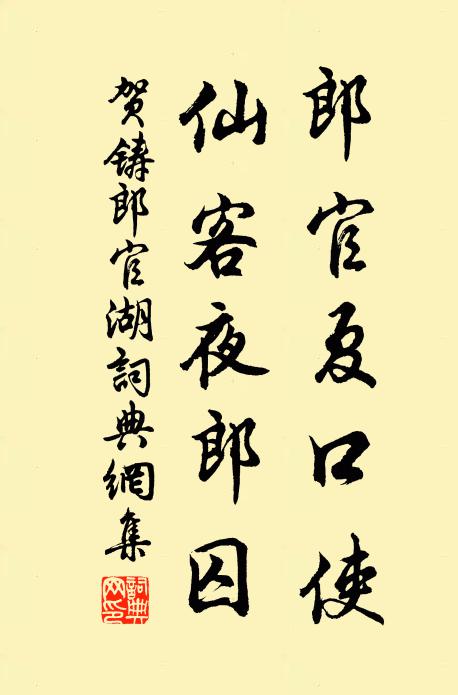 郎官夏口使
仙客夜郎囚
賀鑄郎官湖詞典網集
詞典网印